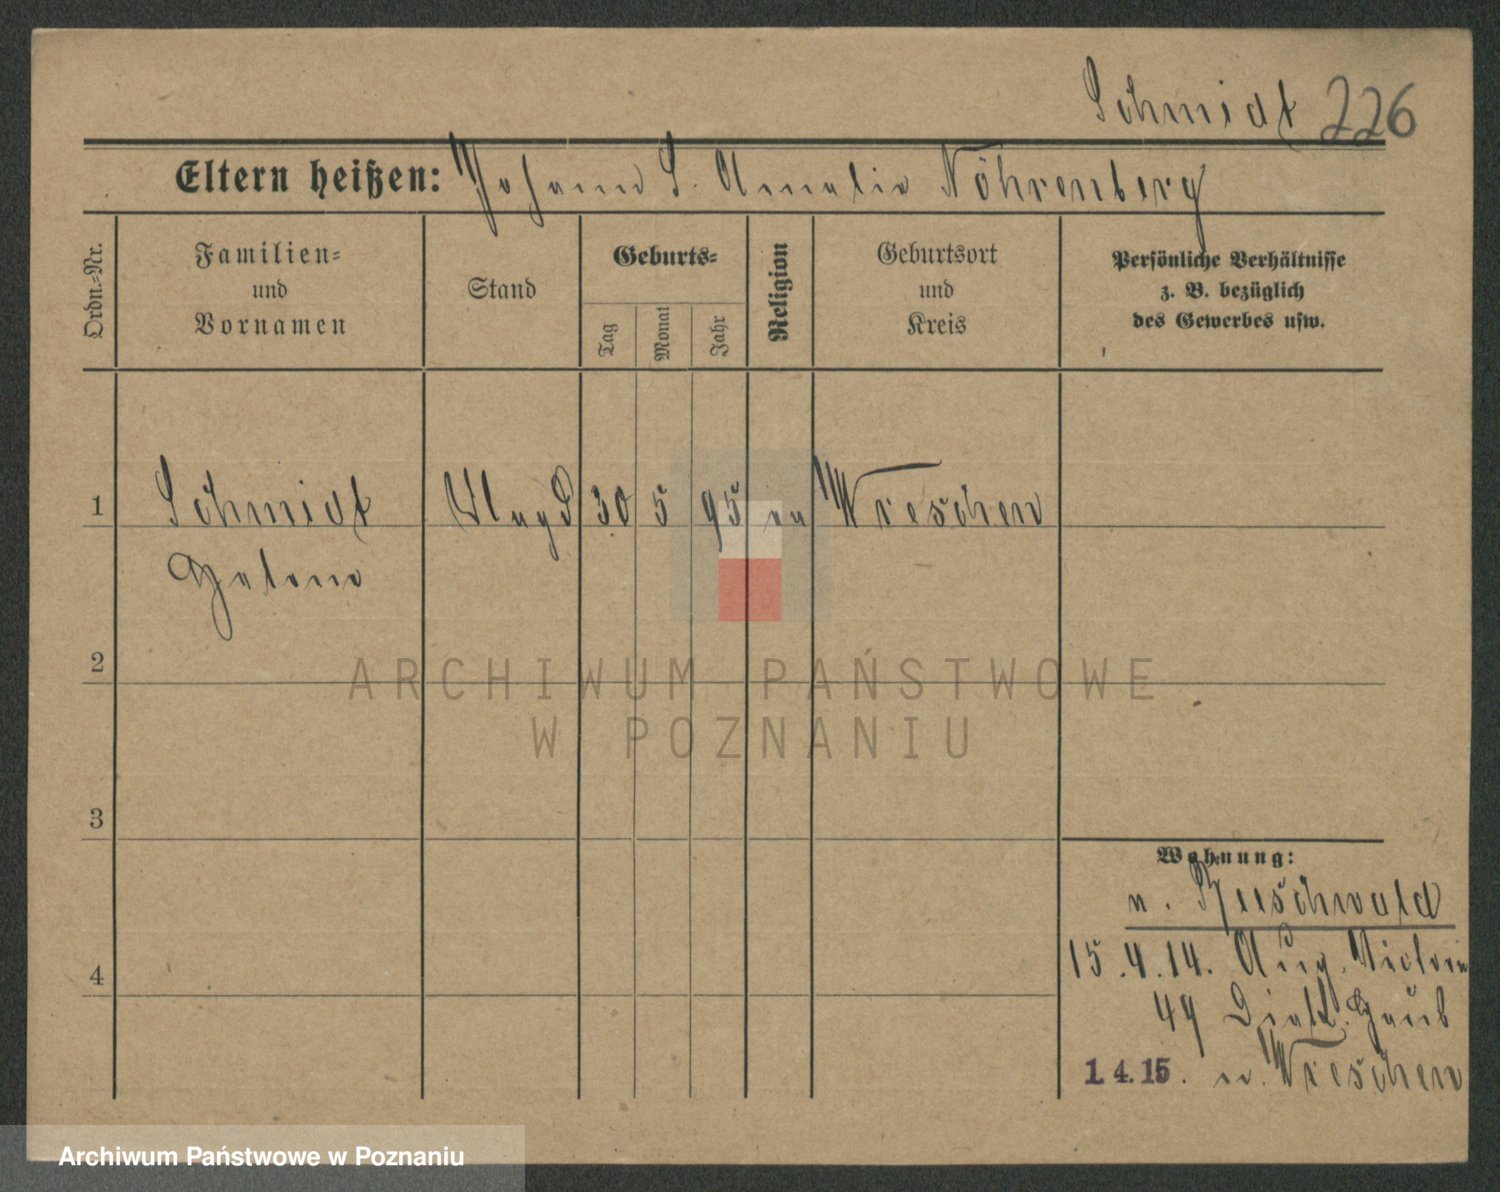 Schmidt 226
Eltern heißen: Johann S. Amalie Nöhrenberg
Ordn.-Nr.
Familien=
und
Vornamen
Stand
Geburts=
Tag
Monat
Jahr
Religion
Geburtsort
und
Kreis
Persönliche Verhältnisse
z. B. bezüglich
des Gewerbes usw.
1 Schmidt Magd 30 5 95 ev Wreschen
Helene
2
ARCHIWUM PAŃSTWOWE
W POZNANIU
3
4
Wohnung:
15.4.14. Aug. Victoria
49
1.4.15. n. Wreschen
Archiwum Państwowe w Poznaniu